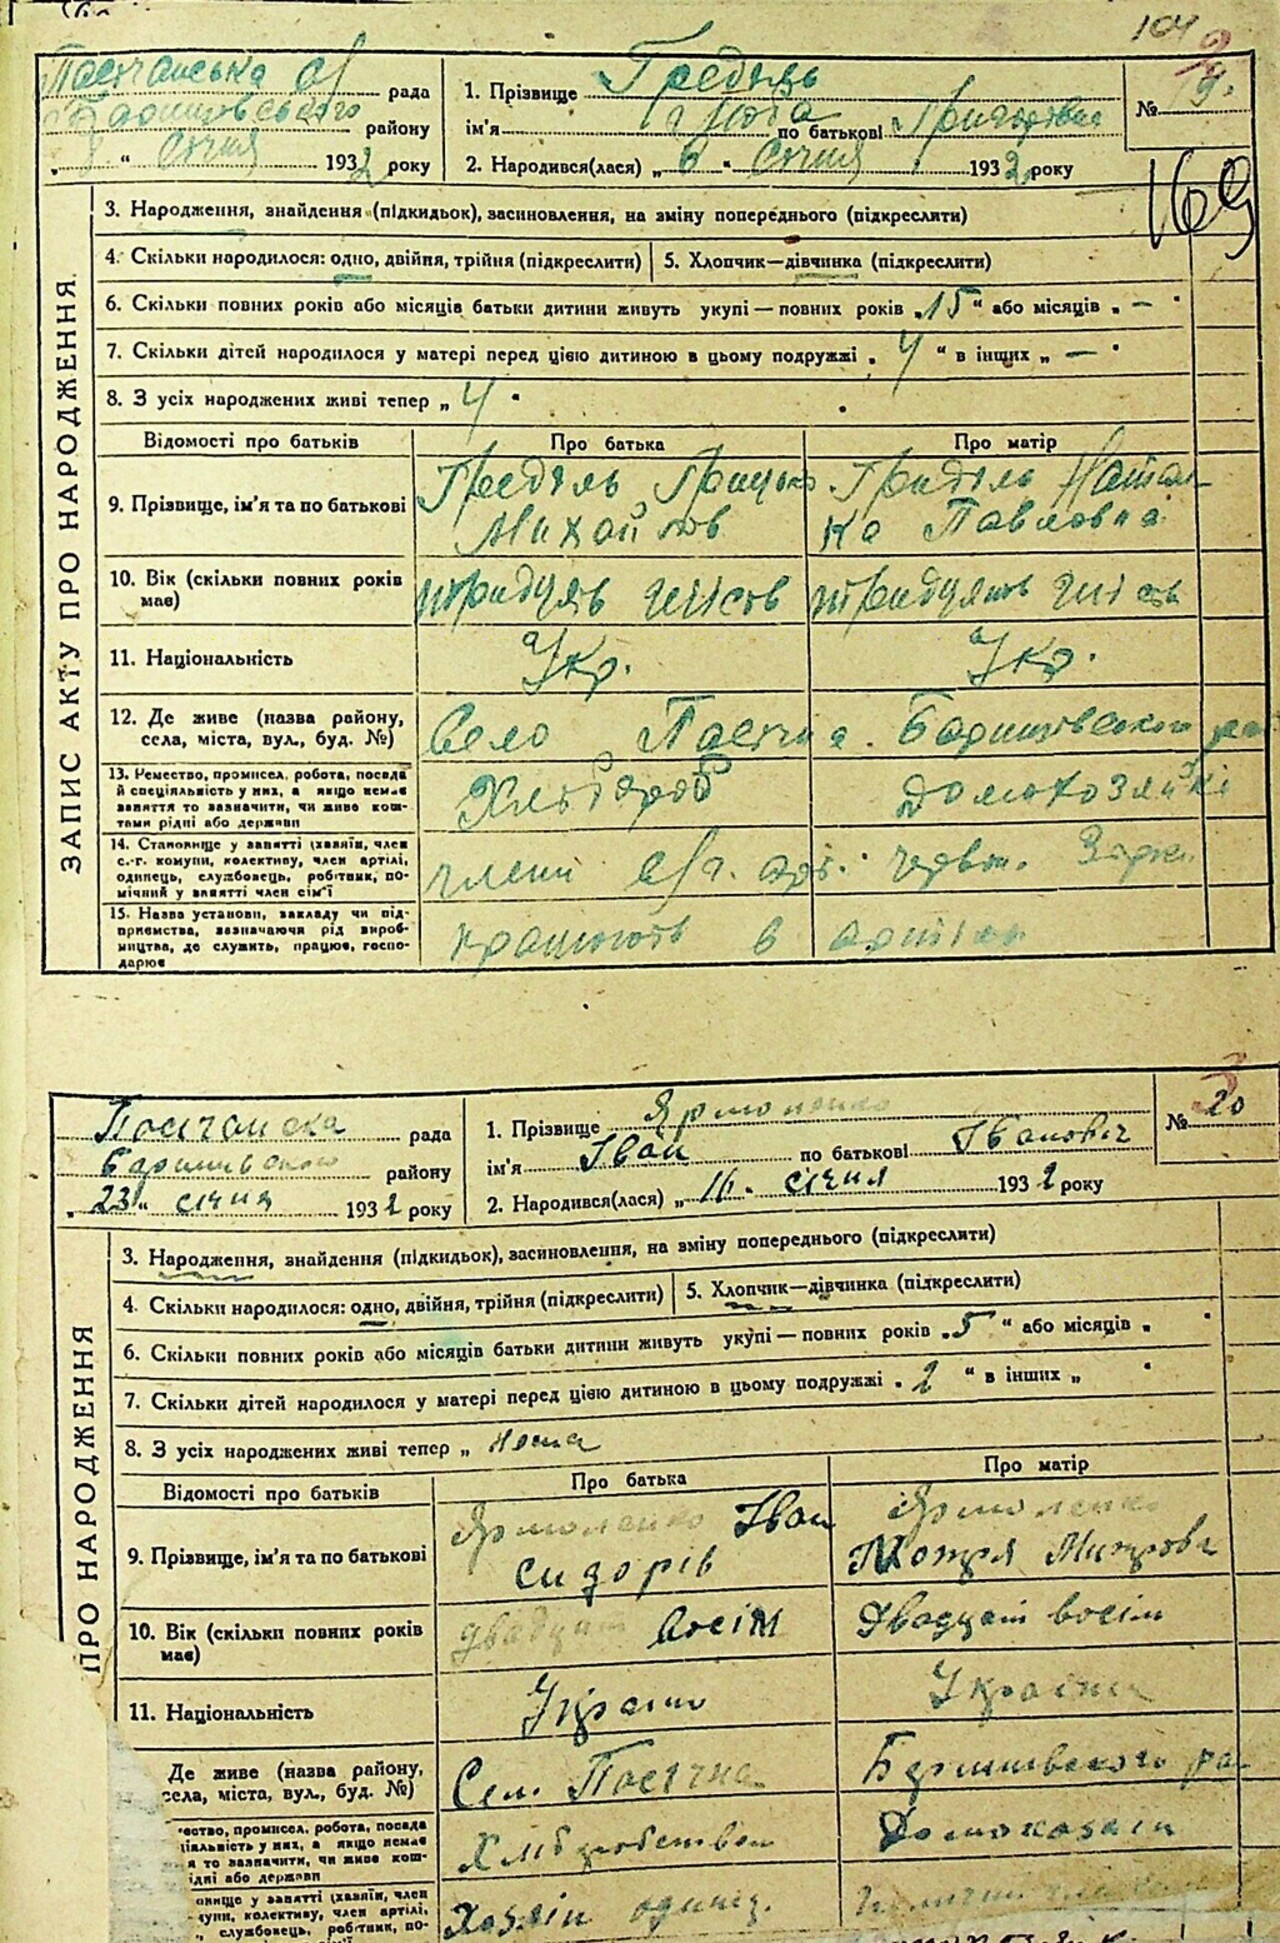 104
рада
району
Січня 1932 року
1. Прізвище Гредиль
ім'я Люба по батькові Григорівна
2. Народився(лася) „ 6 “ Січня 1932 року
№ 9.
169
ЗАПИС АКТУ ПРО НАРОДЖЕННЯ.
3. Народження, знайдення (підкидьок), засиновлення, на зміну попереднього (підкреслити)
4. Скільки народилося: одно, двійня, трійня (підкреслити)
5. Хлопчик—дівчинка (підкреслити)
6. Скільки повних років або місяців батьки дитини живуть укупі — повних років „ 15 “ або місяців „ — “
7. Скільки дітей народилося у матері перед цією дитиною в цьому подружжі „ 4 “ в інших „ — “
8. З усіх народжених живі тепер „ 4 “
Відомості про батьків
Про батька
Про матір
9. Прізвище, ім'я та по батькові
Гредиль Грицько
Михайлов
Гридиль Натал-
ка Павловна
10. Вік (скільки повних років
має)
тридцять шість
тридцять шість
11. Національність
Укр.
Укр.
12. Де живе (назва району,
села, міста, вул., буд. №)
Село Баришівського
13. Ремество, промисел, робота, посада
й спеціяльність у них, а якщо немає
заняття то зазначити, чи живе кош-
тами рідні або держави
Хлібороб
домохозяйкі
14. Становище у занятті (хазяїн, член
с.-г. комуни, колективу, член артілі,
одинець, службовець, робітник, по-
мічний у занятті член сім'ї
члени с/г. арт. черван. Зірки
15. Назва установи, закладу чи під-
приємства, зазначаючи рід вироб-
ництва, де служить, працює, госпо-
дарює
працюють в артілі
рада
Баришівського району
„ 23 “ січня 1932 року
1. Прізвище Ярмоленко
ім'я Іван по батькові Іванович
2. Народився(лася) „ 16 “ січня 1932 року
№ 20
ПРО НАРОДЖЕННЯ
3. Народження, знайдення (підкидьок), засиновлення, на зміну попереднього (підкреслити)
4. Скільки народилося: одно, двійня, трійня (підкреслити)
5. Хлопчик—дівчинка (підкреслити)
6. Скільки повних років або місяців батьки дитини живуть укупі — повних років „ 5 “ або місяців „ “
7. Скільки дітей народилося у матері перед цією дитиною в цьому подружжі „ 2 “ в інших „ “
8. З усіх народжених живі тепер „ нема
Відомості про батьків
Про батька
Про матір
9. Прізвище, ім'я та по батькові
Ярмоленко Іван
Сидорів
Ярмоленко
Мотря Митрова
10. Вік (скільки повних років
має)
двадцят восім
двадцят восім
11. Національність
Україн
Україн
Де живе (назва району,
села, міста, вул., буд. №)
Сел. Баришівського
ество, промисел, робота, посада
іяльність у них, а якщо немає
я то зазначити, чи живе кош-
ідні або держави
Домохазяін
овище у занятті (хазяїн, член
уни, колективу, член артілі,
службовець, робітник, по-
Хозяін одиніц.